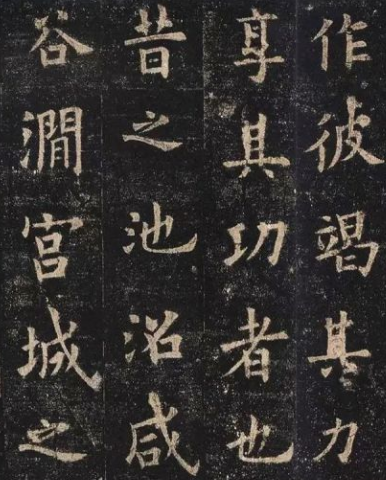 作彼竭其力
享其功者也
昔之池沼咸
谷澗宫城之